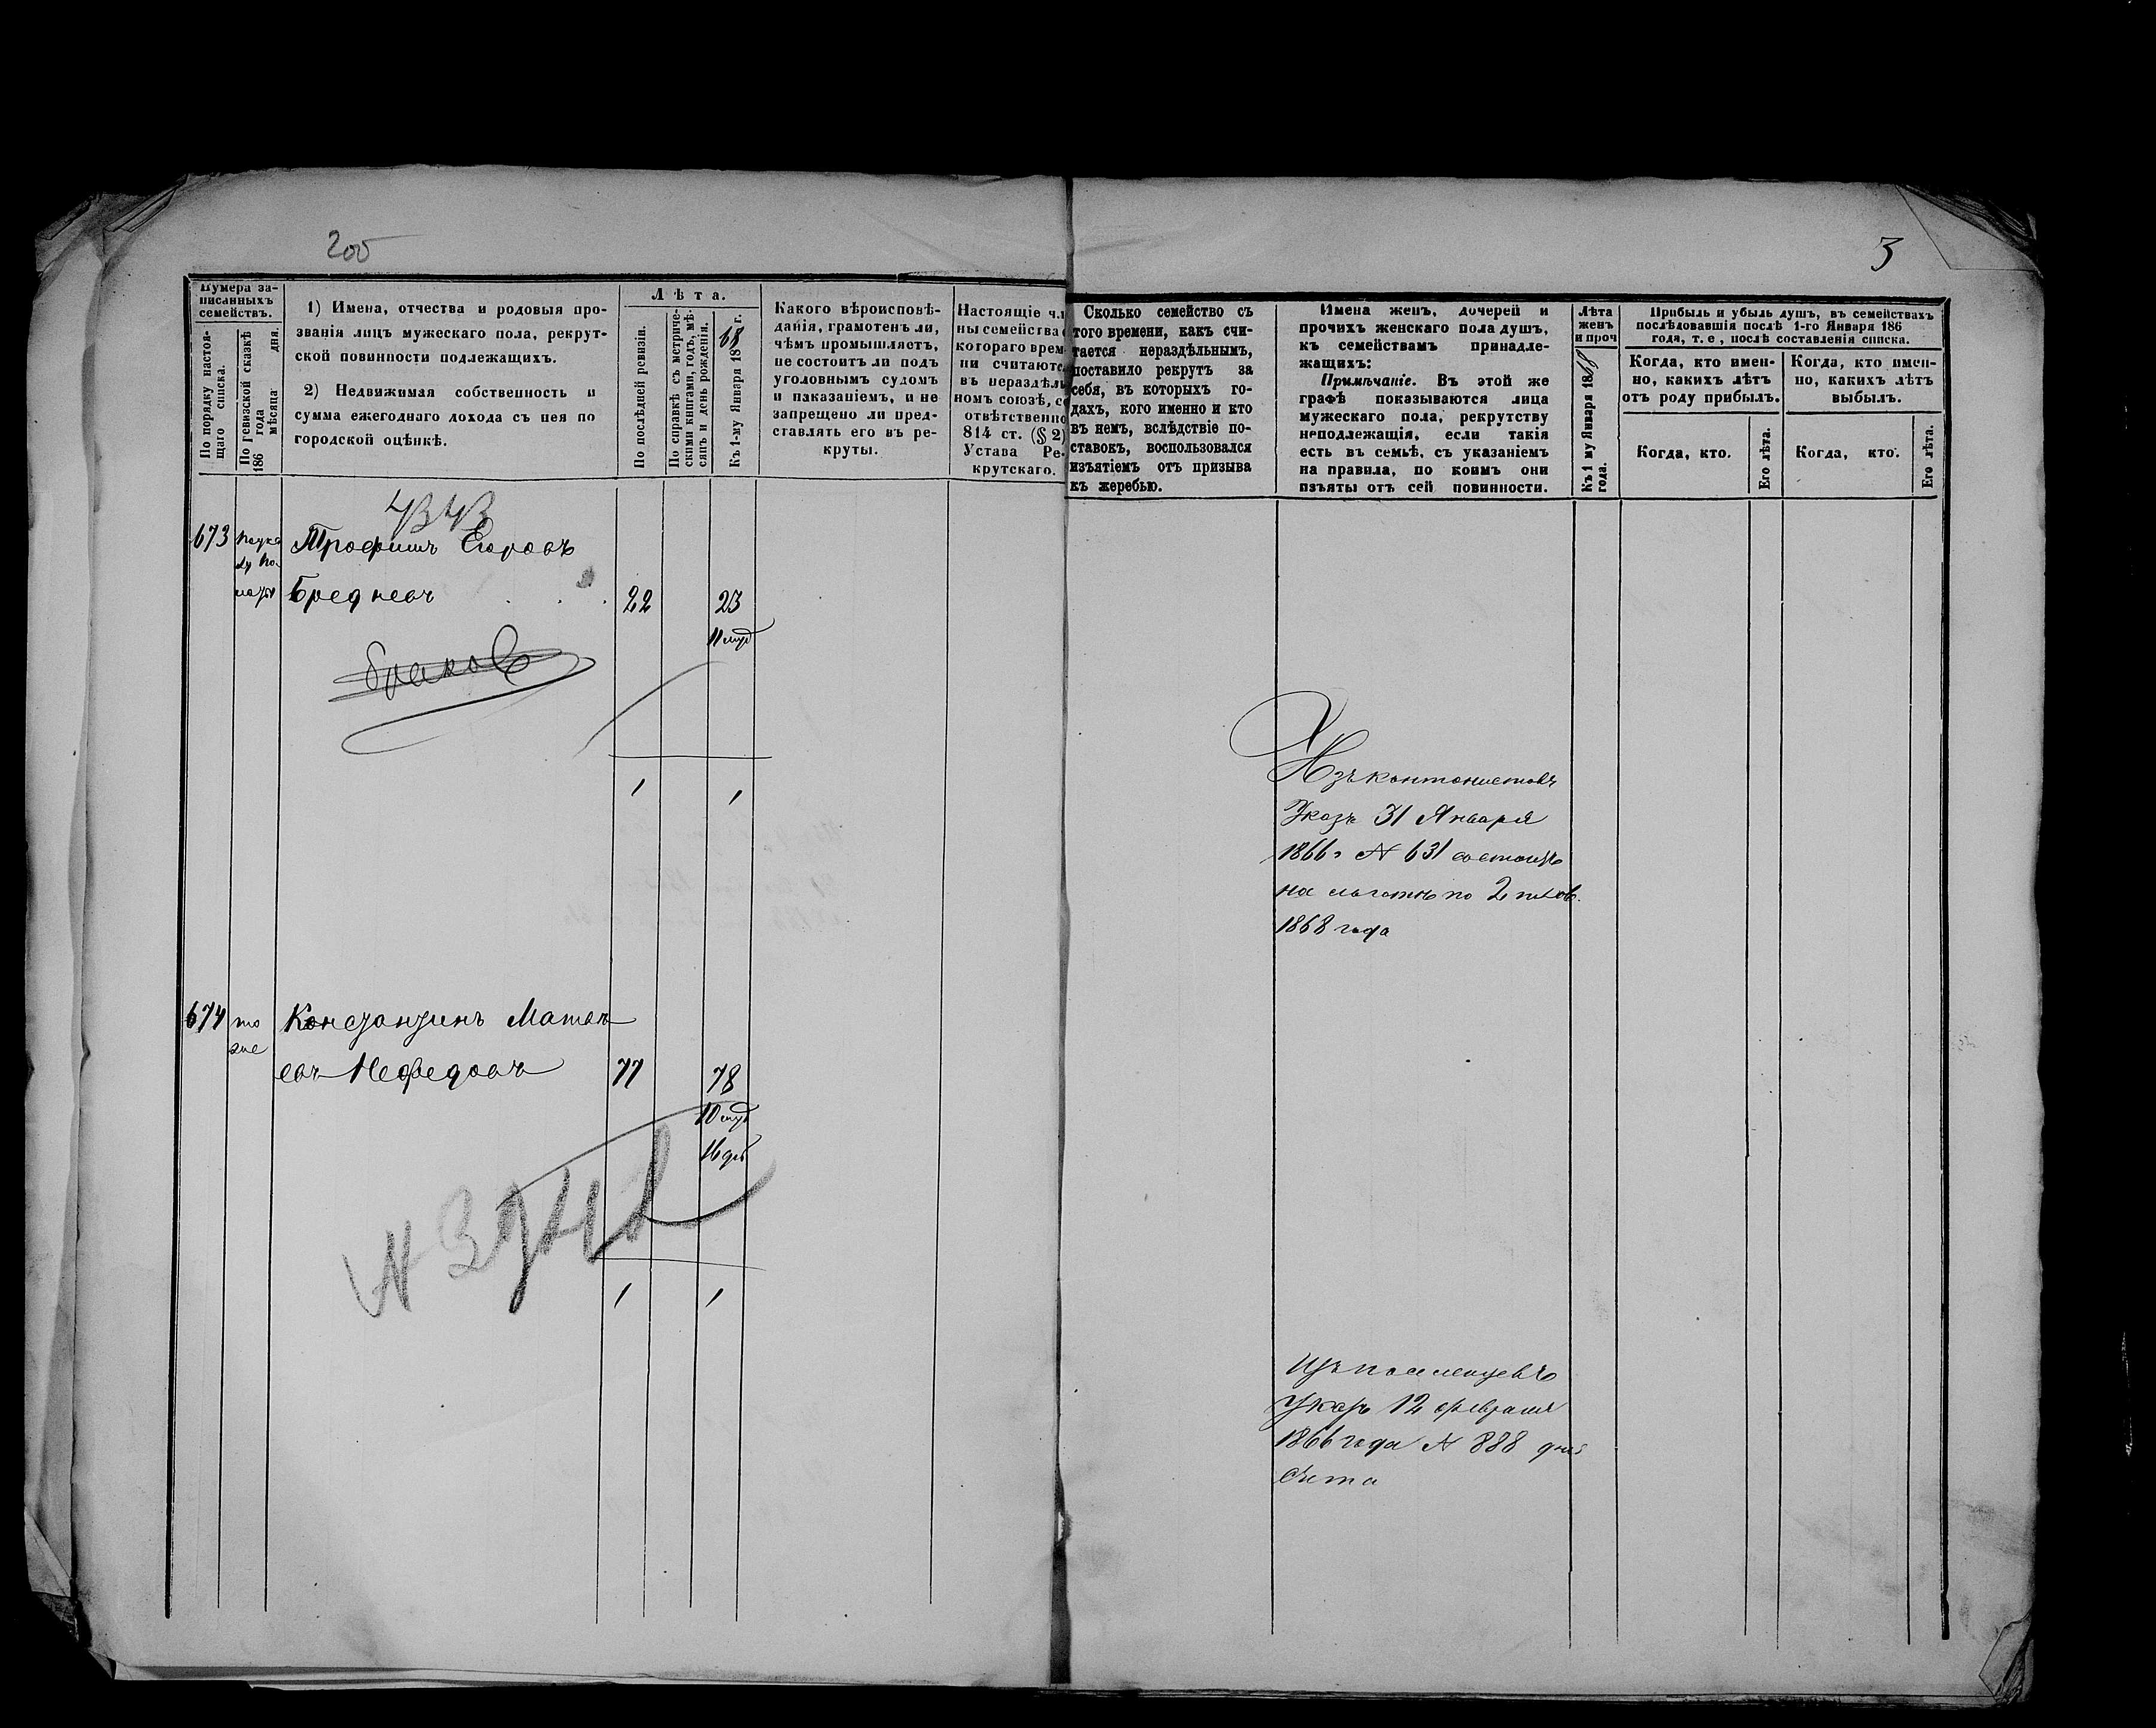 200
3
Нумера за-
писанныхъ
семействъ.
По порядку настоя-
щаго списка.
По ревизской сказкѣ
186 года
мѣсяца дня.
1) Имена, отчества и родовыя про-
званія лицъ мужескаго пола, рекрут-
ской повинности подлежащихъ.
2) Недвижимая собственность и
сумма ежегоднаго дохода съ нея по
городской оцѣнкѣ.
Лѣта.
По послѣдней ревизіи.
По справкѣ съ метриче-
скими книгами, годъ, мѣ-
сяцъ и день рожденія.
Къ 1-му Января 1868 г.
Какого вѣроисповѣ-
данія, грамотенъ ли,
чѣмъ промышляетъ,
не состоитъ ли подъ
уголовнымъ судомъ
и наказаніемъ, и не
запрещено ли пред-
ставлять его въ ре-
круты.
Настоящіе чл
ны семейства
котораго врем
ни считаютс
въ нераздѣль
номъ союзѣ, с
отвѣтственно
814 ст. (§ 2)
Устава Ре-
крутскаго.
Сколько семейство съ
того времени, какъ счи-
тается нераздѣльнымъ,
поставило рекрутъ за
себя, въ которыхъ го-
дахъ, кого именно и кто
въ немъ, вслѣдствіе по-
ставокъ, воспользовался
изъятіемъ отъ призыва
къ жеребью.
Имена женъ, дочерей и
прочихъ женскаго пола душъ,
къ семействамъ принадле-
жащихъ:
Примѣчаніе. Въ этой же
графѣ показываются лица
мужескаго пола, рекрутству
неподлежащія, если такія
есть въ семьѣ, съ указаніемъ
на правила, по коимъ они
изъяты отъ сей повинности.
Лѣта
женъ
и проч
Къ 1 му Января 1868
года.
Прибыль и убыль душъ, въ семействахъ
послѣдовавшія послѣ 1-го Января 186
года, т. е, послѣ составленія списка.
Когда, кто имен-
но, какихъ лѣтъ
отъ роду прибылъ.
Когда, кто имен-
но, какихъ лѣтъ
выбылъ.
Когда, кто.
Его лѣта.
Когда, кто.
Его лѣта.
673 Трофимъ Егоровъ
Бредневъ 22 23
11
1 1
Изъ кантонистовъ
Указъ 31 Января
1866 г N 631 состоитъ
на льготѣ по 2 полов.
1868 года
674 то Константинъ Матвѣ
же
евъ Нефедовъ 77 78
10
16
1 1
Изъ поселенцевъ
Указъ 12 февраля
1866 года N 888 для
счета